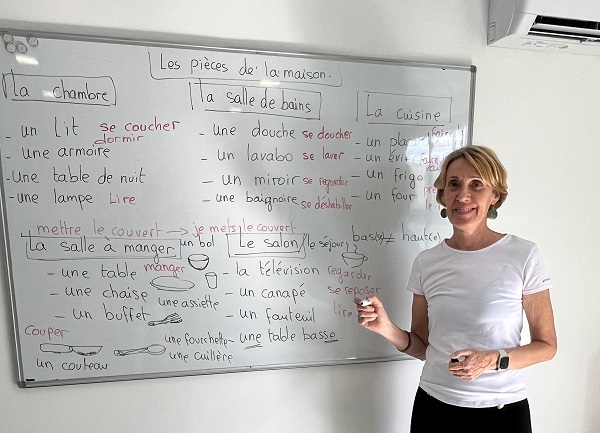 Les pièces de la maison.
La chambre
- un lit se coucher
dormir
- une armoire
- une table de nuit
- une lampe Lire
la salle de bains
- une douche se doucher
- un lavabo se laver
- un miroir se regarder
- une baignoire se déshabiller
La cuisine
- un
- un
- un frigo
- un four
mettre le couvert → je mets le couvert
La salle à manger
- une table manger
- une chaise
- un buffet
un bol
une assiette
couper
un couteau
une fourchette
une cuillère
Le salon/le séjour
bas(se) ≠ haut(e)
- la télévision regarder
- un canapé se reposer
- un fauteuil lire
- une table basse